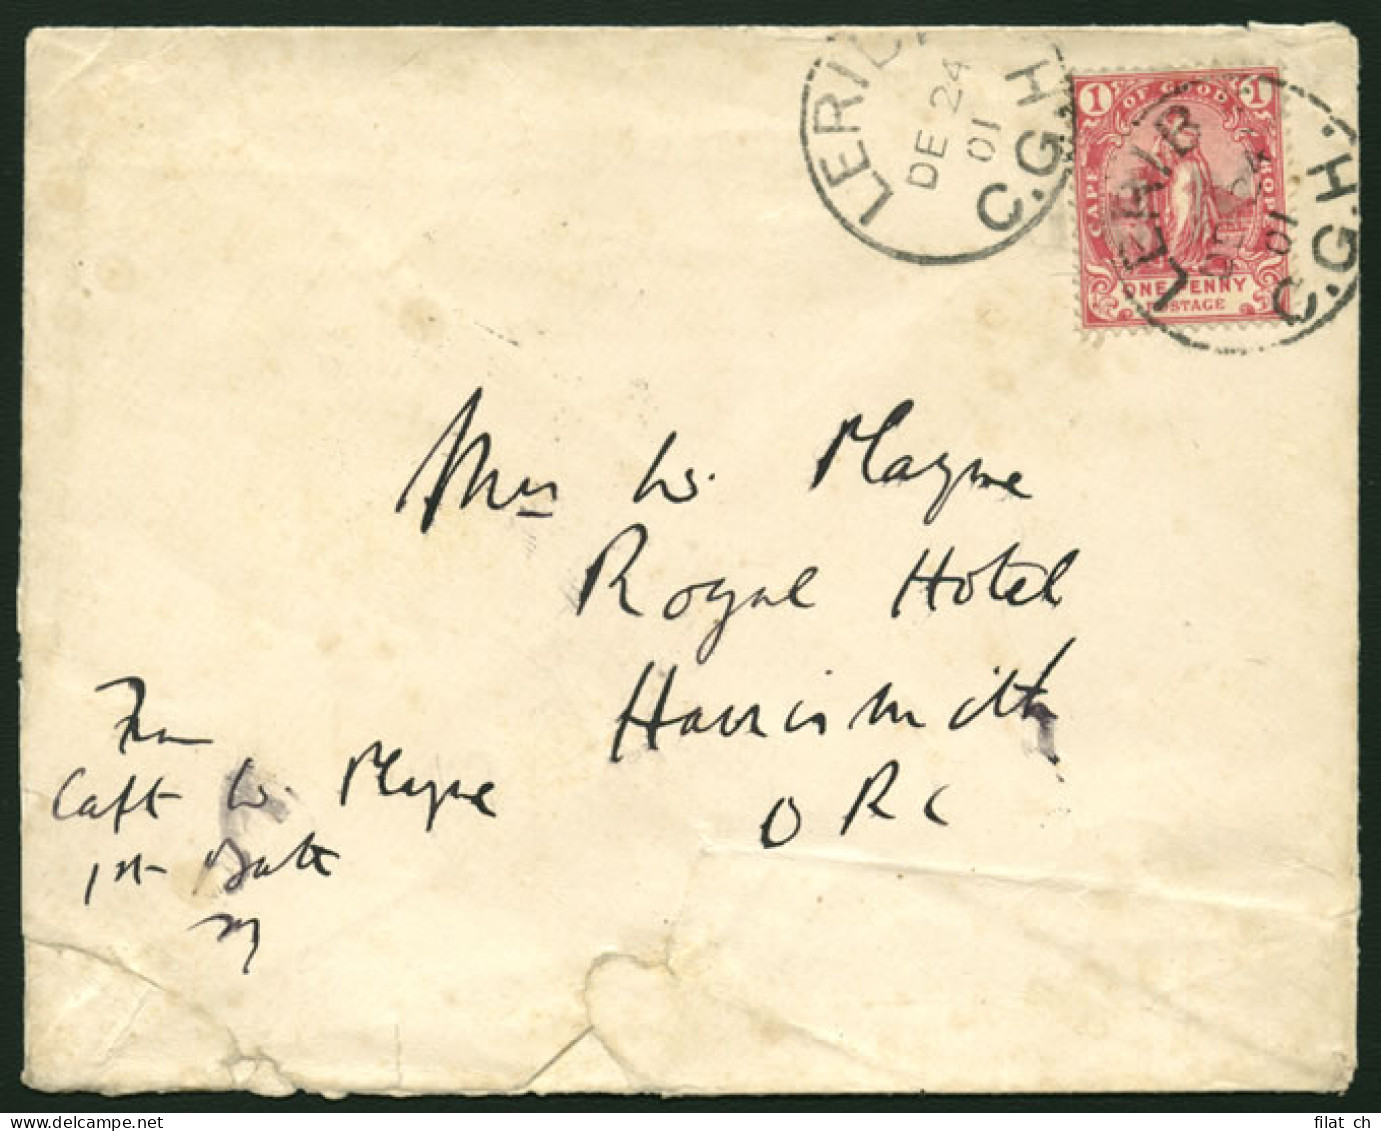 LERIB
DE 24
01
C.G.H
1 OF GOOD 1
CAPE
HOPE
ONE PENNY
POSTAGE
LERIB
DE 24
01
C.G.H.
Mrs W. Mayne
Royal Hotel
Harrismith
O R C
From
Capt W. Mayne
1st Batt
filat ch